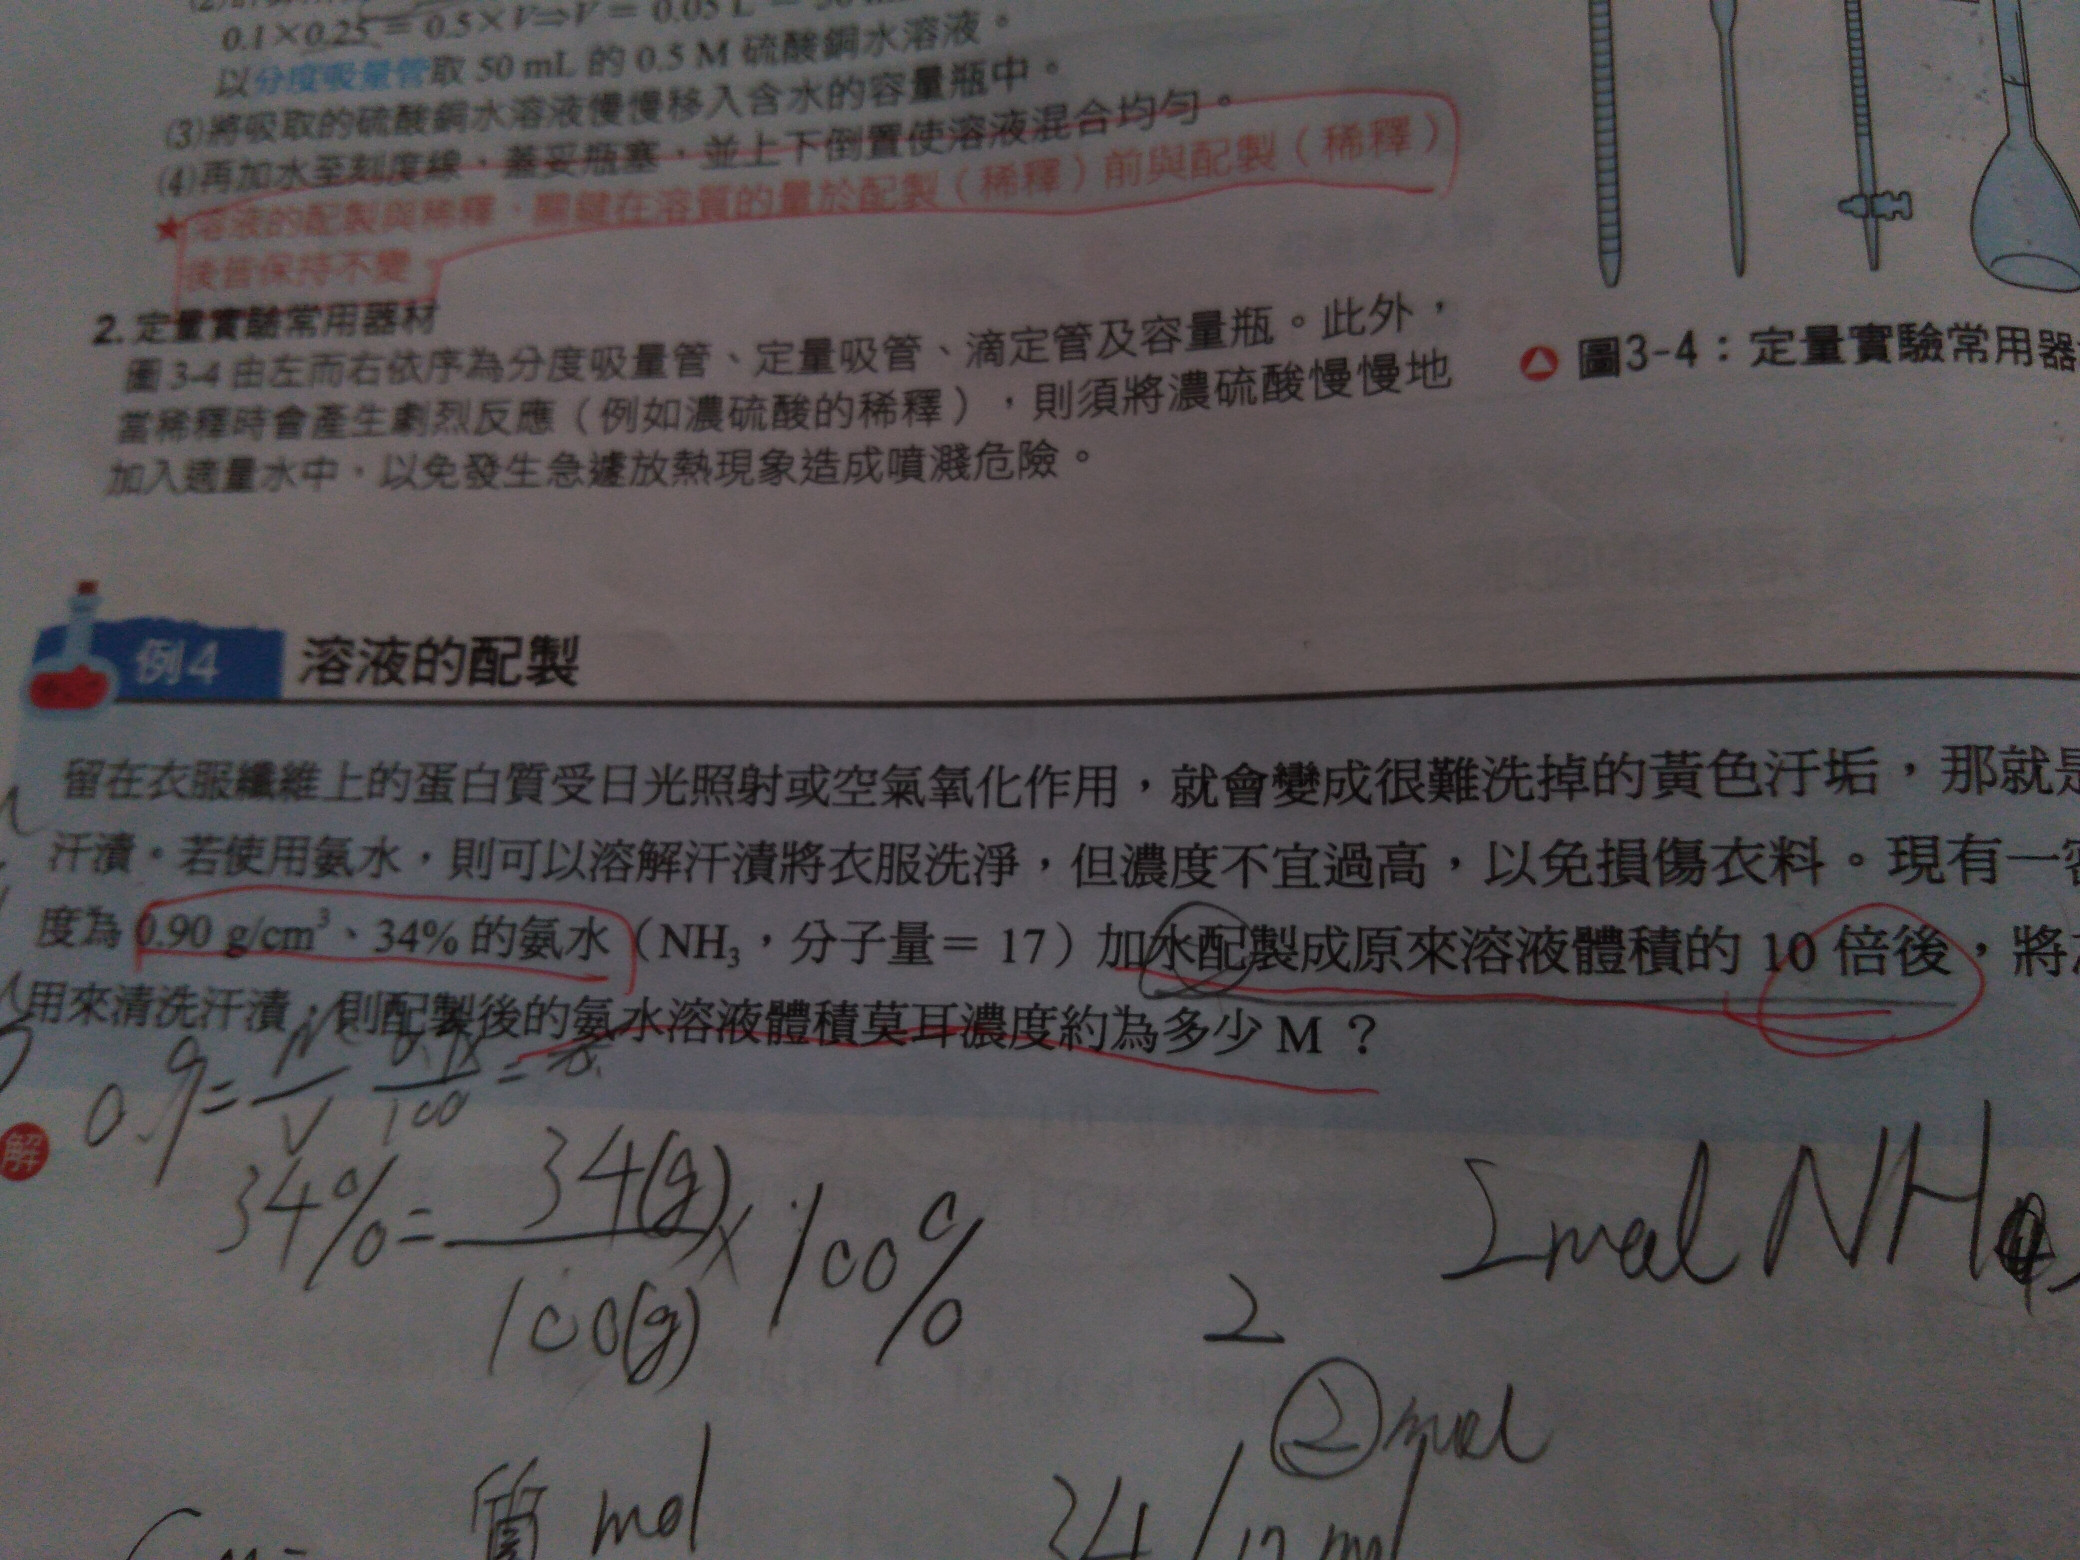 0.1×0.25=0.5×V⇒V=0.05 L
以分度吸量管取 50 mL 的 0.5 M 硫酸銅水溶液。
(3)將吸取的硫酸銅水溶液慢慢移入含水的容量瓶中。
(4)再加水至刻度線、蓋妥瓶塞，並上下倒置使溶液混合均勻。
★溶液的配製與稀釋，關鍵在溶質的量於配製（稀釋）前與配製（稀釋）
後皆保持不變。
2. 定量實驗常用器材
圖 3-4 由左而右依序為分度吸量管、定量吸管、滴定管及容量瓶。此外，
當稀釋時會產生劇烈反應（例如濃硫酸的稀釋），則須將濃硫酸慢慢地
加入適量水中，以免發生急遽放熱現象造成噴濺危險。
圖3-4：定量實驗常用器
例4 溶液的配製
留在衣服纖維上的蛋白質受日光照射或空氣氧化作用，就會變成很難洗掉的黃色汙垢，那就是
汗漬。若使用氨水，則可以溶解汗漬將衣服洗淨，但濃度不宜過高，以免損傷衣料。現有一密
度為 0.90 g/cm³、34% 的氨水（NH₃，分子量＝17）加水配製成原來溶液體積的 10 倍後，將
用來清洗汗漬，則配製後的氨水溶液體積莫耳濃度約為多少 M？
0.9=
V 100
解
34%=34(g)/100(g)×100%
2mol NH
2
②mol
質 mol
34/17 mol